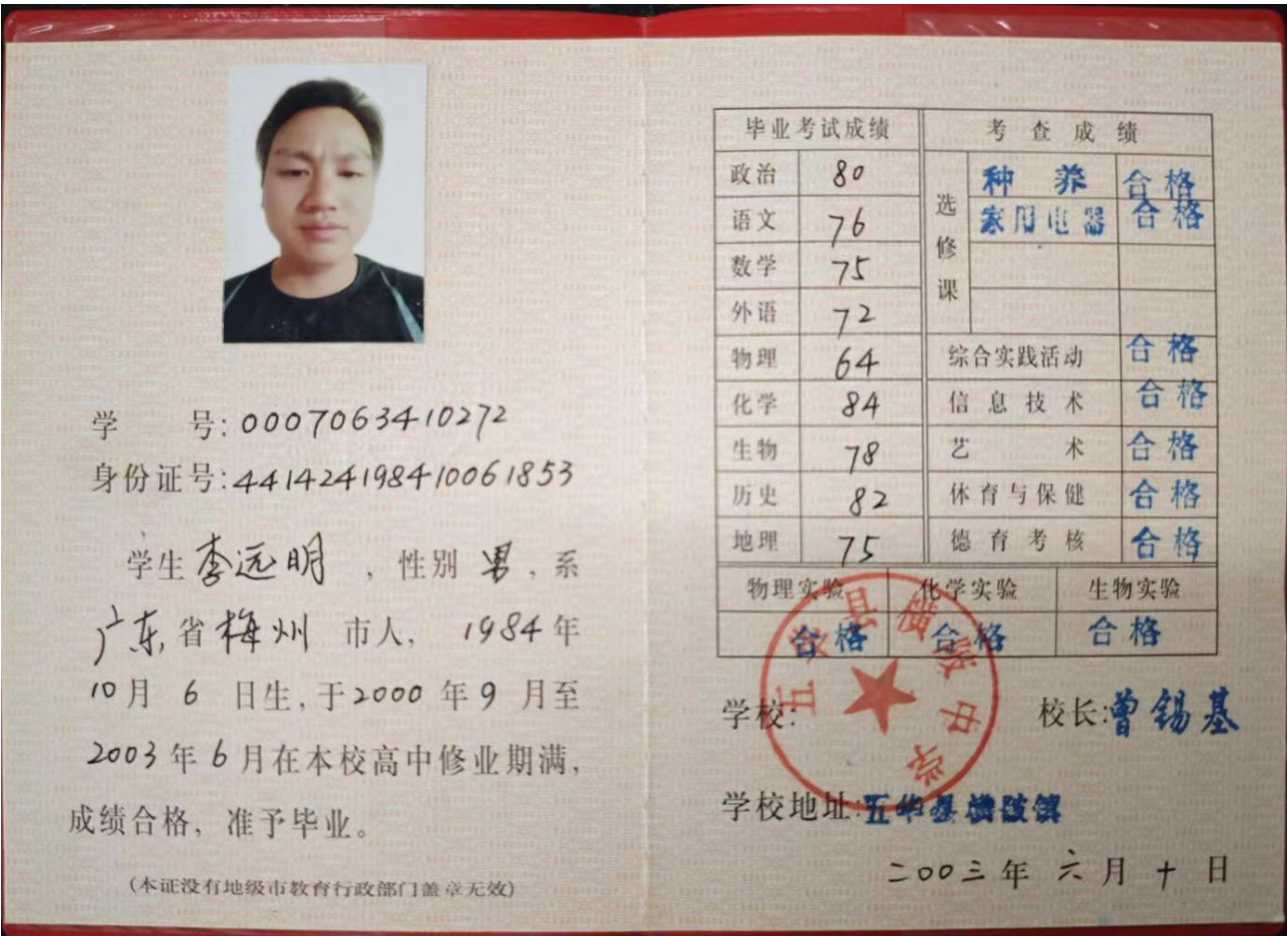 学 号:0007063410272
身份证号:441424198410061853
学生李远明,性别 男,系
广东省梅州 市人, 1984年
10月 6 日生,于2000 年9 月至
2003年6月在本校高中修业期满,
成绩合格,准予毕业。
(本证没有地级市教育行政部门盖章无效)
毕业考试成绩 考查成绩
政治 80 选修课 种养 合格
语文 76 家用电器 合格
数学 75
外语 72
物理 64 综合实践活动 合格
化学 84 信息技术 合格
生物 78 艺术 合格
历史 82 体育与保健 合格
地理 75 德育考核 合格
物理实验 化学实验 生物实验
合格 合格 合格
五华县横陂中学
学校: 校长:曾锡基
学校地址:五华县横陂镇
二00三年 六月十日